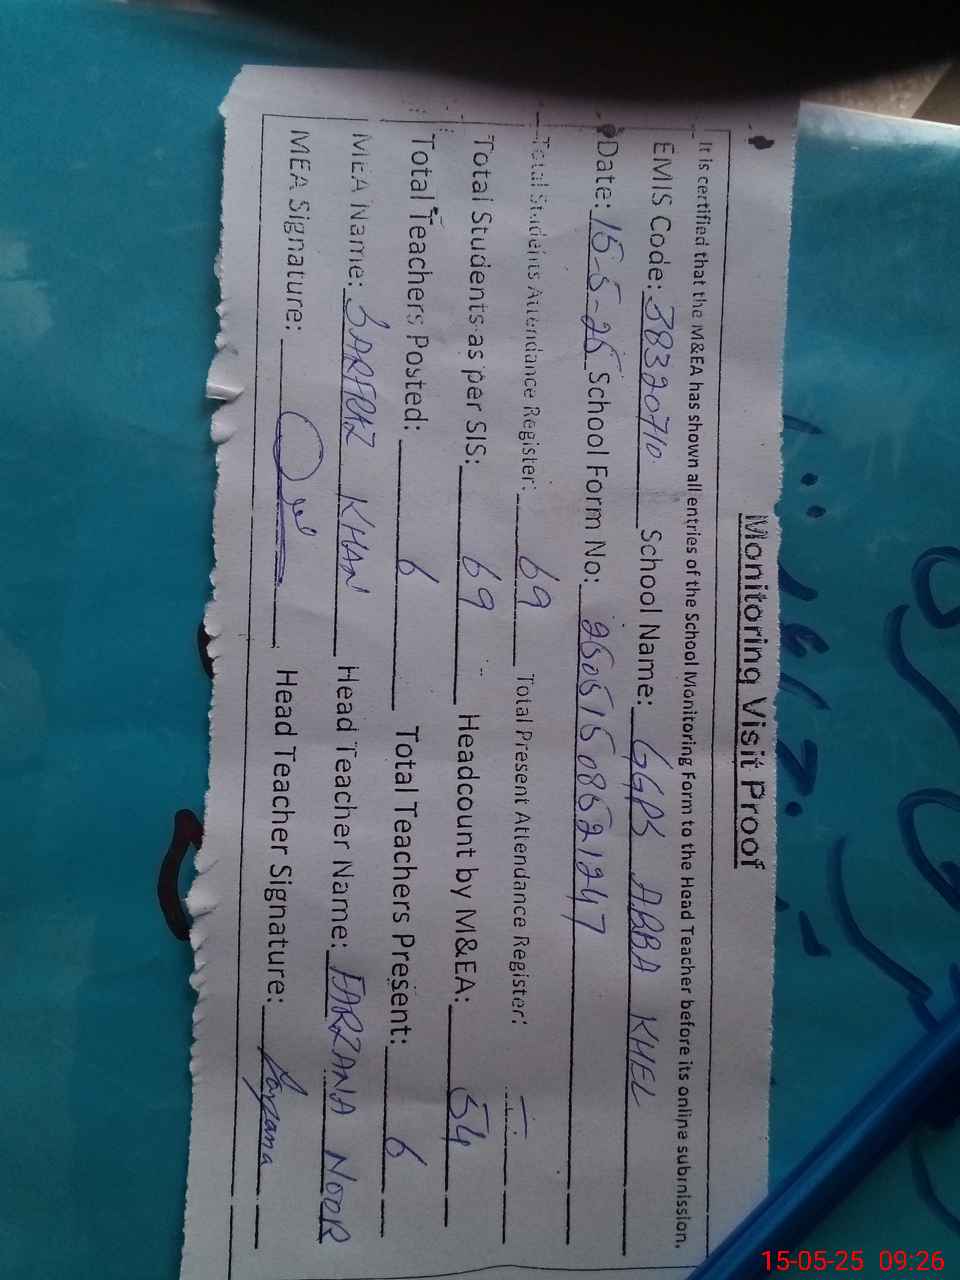 Monitoring Visit Proof
It is certified that the M&EA has shown all entries of the School Monitoring Form to the Head Teacher before its online submission.
EMIS Code: 38320710 School Name: GGPS ABBA KHEL
Date: 15-5-25 School Form No: 25051508521247
Total Students Attendance Register: 69 Total Present Attendance Register: —
Total Students as per SIS: 69 Headcount by M&EA: 54
Total Teachers Posted: 6 Total Teachers Present: 6
MEA Name: SARFRAZ KHAN Head Teacher Name: FARZANA NOOR
MEA Signature: Head Teacher Signature: Farzana
15-05-25 09:26